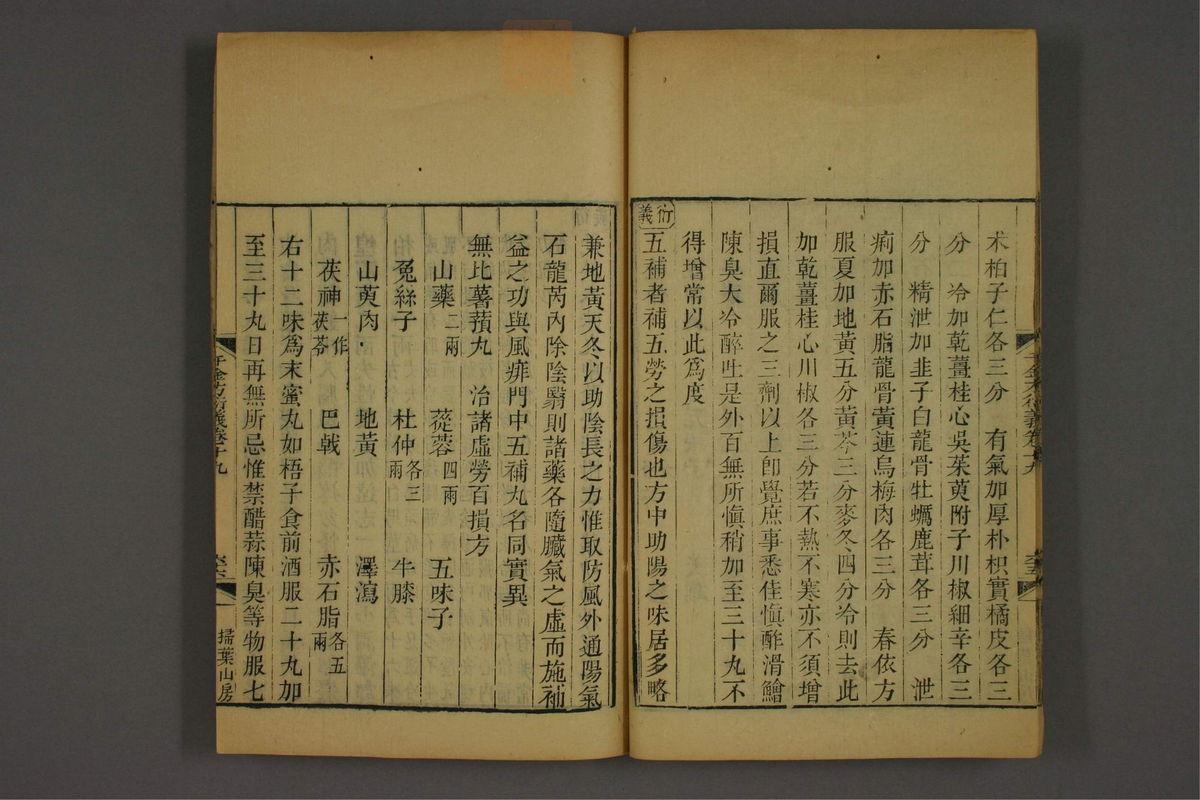 朮柏子仁各三分　有氣加厚朴枳實橘皮各三
分　冷加乾薑桂心吳茱萸附子川椒細辛各三
分　精泄加韭子白龍骨牡蠣鹿茸各三分　泄
痢加赤石脂龍骨黃連烏梅肉各三分　春依方
服夏加地黃五分黃芩三分麥冬四分冷則去此
加乾薑桂心川椒各三分若不熱不寒亦不須增
損直爾服之三劑以上卽覺庶事悉佳愼酢滑鱠
陳臭大冷醉吐是外百無所愼稍加至三十丸不
得增常以此爲度
衍義
五補者補五勞之損傷也方中助陽之味居多略
兼地黃天冬以助陰長之力惟取防風外通陽氣
石龍芮內除陰翳則諸藥各隨臟氣之虛而施補
益之功與風痱門中五補丸名同實異
無比薯蕷丸　治諸虛勞百損方
山藥二兩　蓯蓉四兩　五味子
兔絲子　杜仲各三兩　牛膝
山萸肉　地黃　澤瀉
茯神一作茯苓　巴戟　赤石脂各五兩
右十二味爲末蜜丸如梧子食前酒服二十丸加
至三十丸日再無所忌惟禁醋蒜陳臭等物服七
千金方衍義卷十九
掃葉山房